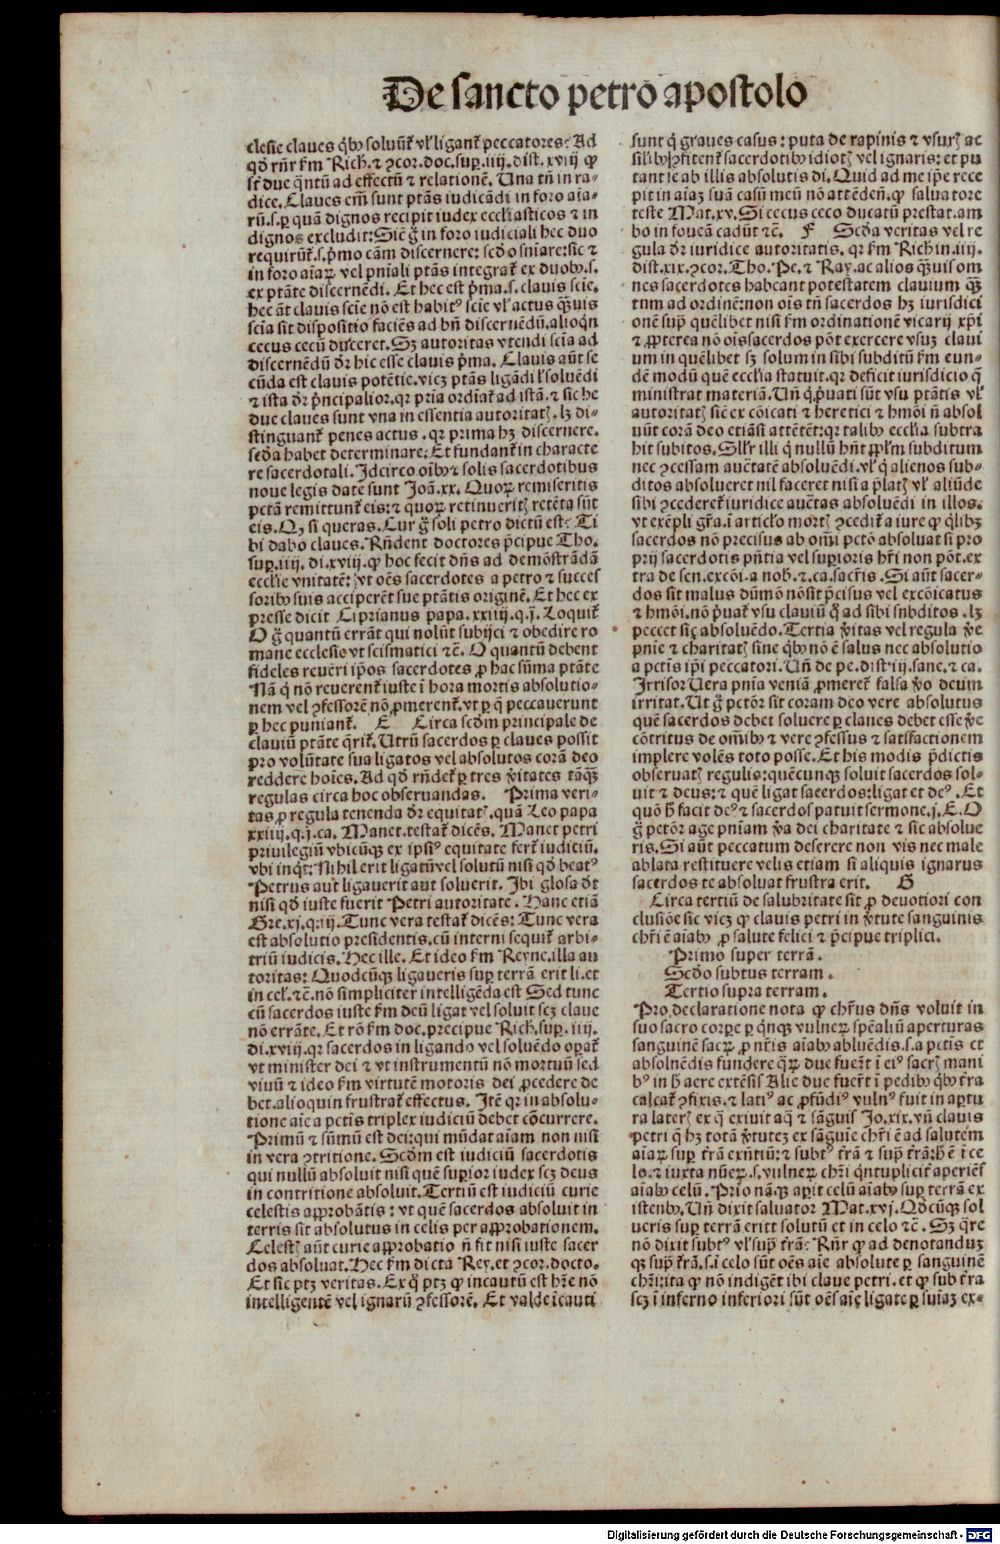 De sancto petro apostolo
clesie claues q̄bꝫ soluūt᷑ vl᷑ ligant᷑ peccatores: Ad
qd̄ rn̄r fm̄ Rich. ⁊ ꝯcor. doc. suꝑ. iiij. dist. xviij ꝙ
st᷑ due q̄ntū ad effectū ⁊ relationē. Una tn̄ in ra-
dice. Claues em̄ sunt ptās iudicādi in foro aīa-
rū. s. ꝑ quā dignos recipit iudex eccl̄iasticos ⁊ in
dignos excludit: Sic̄ g̊ in foro iudiciali hec duo
requirūt᷑. s. p̄mo cām discernere: scd̄o sn̄iare: sic ⁊
in foro aīaꝝ vel pn̄iali ptās integrat᷑ ex duobꝫ. s.
ex ptāte discernēdi. Et hec est p̄ma. s. clauis scīe.
hec āt clauis scīe nō est habitꝰ scīe vl᷑ actus q̄uis
scīa sit dispositio faciēs ad bn̄ discernēdū. alioq̄n
cecus cecū disceret. Sꝫ autoritas vtendi scīa ad
discernēdū dr̄ hic esse clauis p̄ma. Clauis aūt se
cūda est clauis potētie. vicꝫ ptās ligādi l᷑ soluēdi
⁊ ista dr̄ p̄ncipalior. qr pria ordīat᷑ ad istā. ⁊ sic he
due claues sunt vna in essentia autoritatꝭ. lꝫ di-
stinguant᷑ penes actus. qr prima hꝫ discernere.
scd̄a habet determinare: Et fundant᷑ in characte
re sacerdotali. Idcirco oībꝫ ⁊ solis sacerdotibus
noue legis date sunt Joā. xx. Quoꝝ remiseritis
pctā remittunt᷑ eis: ⁊ quoꝝ retinueritꝭ retēta sūt
eis. Qꝫ si queras. Cur g̊ soli petro dictū est: Ti
bi dabo claues. Rn̄dent doctores p̄cipue Tho.
suꝑ. iiij. di. xviij. ꝙ hoc fecit dn̄s ad demōstrādā
eccl̄ie vnitatē: vt oēs sacerdotes a petro ⁊ succes
soribꝫ suis acciperēt sue ptātis originē. Et hec ex
presse dicit Ciprianus papa. xxiiij. q. j. Loquit᷑
O g̊ quantū errāt qui nolūt subijci ⁊ obedire ro
mane ecclesie vt scismatici ⁊ē. O quantū debent
fideles reuēri ip̄os sacerdotes ꝓ hac sūma ptāte
Nā q̄ nō reuerent᷑ iuste ī hora mortis absolutio-
nem vel ꝯfessorē nō ꝓmerent᷑. vt ꝑ q̄ peccauerunt
ꝑ hec puniant᷑. E Circa scd̄m principale de
clauiū ptāte q̄rit᷑. Utrū sacerdos ꝑ claues possit
pro volūtate sua ligatos vel absolutos corā deo
reddere hoīes. Ad qd̄ rn̄det᷑ ꝑ tres v̄itates tāq̄ꝫ
regulas circa hoc obseruandas. Prima veri-
tas ꝓ regula tenenda dr̄ equitatꝭ. quā Leo papa
xxiiij. q. j. ca. Manet. testat᷑ dicēs. Manet petri
priuilegiū vbicūqꝫ ex ipsiꝰ equitate fert᷑ iudiciū.
vbi inq̄t: Nihil erit ligatū vel solutū nisi qd̄ beatꝰ
Petrus aut ligauerit aut soluerit. Ibi glosa dt̄
nisi qd̄ iuste fuerit Petri autoritate. Hanc etiā
Gre. xj. q. iij. Tunc vera testat᷑ dicēs: Tunc vera
est absolutio presidentis. cū interni sequit᷑ arbi-
triū iudicis. Hec ille. Et ideo fm̄ Reyne. illa au
toritas: Quodcūqꝫ ligaueris suꝑ terrā erit li. et
in cel᷑. ⁊ē. nō simpliciter intelligēda est Sed tunc
cū sacerdos iuste fm̄ deū ligat vel soluit scꝫ claue
nō errāte. Et rō fm̄ doc. precipue Rich. suꝑ. iiij.
di. xviij. qr sacerdos in ligando vel soluēdo oꝑat᷑
vt minister dei ⁊ vt instrumentū nō mortuū sed
viuū ⁊ ideo fm̄ virtutē motoris dei ꝓcedere de
bet. alioquin frustrat᷑ effectus. Itē qr in absolu-
tione aīe a pctis triplex iudiciū debet cōcurrere.
Primū ⁊ sūmū est dei: qui mūdat aīam non nisi
in vera ꝯtritione. Scd̄m est iudiciū sacerdotis
qui nullū absoluit nisi quē suꝑior iudex scꝫ deus
in contritione absoluit. Tertiū est iudiciū curie
celestis aꝓprobātis: vt quē sacerdos absoluit in
terris sit absolutus in celis per approbationem.
Celestꝭ aūt curie aꝓprobatio n̄ fit nisi iuste sacer
dos absoluat. Hec fm̄ dicta Rey. et ꝯcor. docto.
Et sic ptꝫ veritas. Ex q̊ ptꝫ ꝙ incautū est hr̄e nō
intelligentē vel ignarū ꝯfessorē. Et valde īcauti
sunt q̄ graues casus: puta de rapinis ⁊ vsurꝭ ac
sil᷑ibꝫ ꝯfitent᷑ sacerdotibꝫ idiotꝭ vel ignaris: et pu
tant se ab illis absolutis di. Quid ad me ip̄e rece
pit in aīaꝫ suā casū meū nō attēdēn̄. ꝙ saluatore
teste Mat. xv. Si cecus ceco ducatū prestat. am
bo in foueā cadūt ⁊ē. F Scd̄a veritas vel re
gula dr̄ iuridice autoritatis. qr fm̄ Rich in. iiij.
dist. xix. ꝯcor. Tho. Pe. ⁊ Ray. ac alios q̄uis om
nes sacerdotes habeant potestatem clauium q̄ꝫ
tum ad ordinē: non oīs tn̄ sacerdos hꝫ iurisdici
onē suꝑ quēlibet nisi fm̄ ordinationē vicarij xp̄i
⁊ ꝓpterea nō oīs sacerdos pōt exercere vsuꝫ claui
um in quēlibet sꝫ solum in sibi subditū fm̄ eun-
dē modū quē eccl̄ia statuit. qr deficit iurisdicio q̄
ministrat materiā. Un̄ q̄ p̄uati sūt vsu ptātis vl᷑
autoritatꝭ sic̄ ex cōicati ⁊ heretici ⁊ hm̄oi n̄ absol
uūt corā deo etiāsi attētēt: qr talibꝫ eccl̄ia subtra
hit subditos. Sil᷑r illi q̄ nullū hn̄t ꝓprl᷑m subditum
nec ꝯcessam auctatē absoluēdi. vl᷑ q̄ alienos sub-
ditos absolueret nil faceret nisi a p̄latꝭ vl᷑ aliūde
sibi ꝯcederet᷑ iuridice auctas absoluēdi in illos.
vt exēpli gr̄a. ī articl᷑o mortꝭ ꝯcedit᷑ a iure ꝙ q̄libꝫ
sacerdos nō precisus ab om̄i pctō absoluat si pro
prij sacerdotis pn̄tia vel suꝑioris hr̄i non pōt. ex
tra de sen. excōi. a nob̄. ⁊. ca. sacr̄is. Si aūt sacer-
dos sit malus dūmō nō sit p̄cisus vel excōicatus
⁊ hm̄oi. nō p̄uat᷑ vsu clauiū q̊ ad sibi snbditos. lꝫ
peccet sic absoluēdo. Tertia v̄itas vel regula v̄e
pnīe ⁊ charitatꝭ sine q̄bꝫ nō ē salus nec absolutio
a pctis ip̄i peccatori. Un̄ de pe. dist. iij. sane. ⁊ ca.
Irrisor Uera pnīa veniā ꝓmeret᷑ falsa v̊o deum
irritat. Ut g̊ pctōr sit coram deo vere absolutus
quē sacerdos debet soluere ꝑ claues debet esse v̄e
cōtritus de om̄ibꝫ ⁊ vere ꝯfessus ⁊ satisfactionem
implere volēs toto posse. Et his modis p̄dictis
obseruatꝭ regulis: quēcunqꝫ soluit sacerdos sol-
uit ⁊ deus: ⁊ quē ligat sacerdos: ligat et deꝰ. Et
quō h̄ facit deꝰ ⁊ sacerdos patuit sermone. j. E. O
g̊ pctōr age pn̄iam v̄a dei charitate ⁊ sic absolue
ris. Si aūt peccatum deserere non vis nec male
ablata restituere velis etiam si aliquis ignarus
sacerdos te absoluat frustra erit. G
Circa tertiū de salubritate sit ꝓ deuotiori con
clusiōe sic vicꝫ ꝙ clauis petri in v̄tute sanguinis
chr̄i ē aīabꝫ ꝓ salute felici ⁊ p̄cipue triplici.
Primo super terrā.
Scd̄o subtus terram.
Tertio supra terram.
Pro declaratione nota ꝙ chr̄us dn̄s voluit in
suo sacro corꝑe ꝑ q̄nqꝫ vulneꝝ spēaliū aperturas
sanguinē sacꝝ ꝓ nr̄is aīabꝫ abluēdis. s. a pctis et
absolnēdis fundere q̄ꝝ due fuer̄t ī eiꝰ sacrꝭ mani
bꝰ in h̄ aere extēsis Alie due fuer̄t ī pedibꝫ q̄bꝫ tr̄a
calcat᷑ ꝯfixis. ⁊ latiꝰ ac ꝓfūdiꝰ vulnꝰ fuit in aꝑtu
ra laterꝭ ex q̊ exiuit aq̄ ⁊ sāguis Jo. xix. vn̄ clauis
petri q̄ hꝫ totā v̄tuteꝫ ex sāguīe chr̄i ē ad salutem
aīaꝝ suꝑ tr̄ā exn̄tiū: ⁊ subtꝰ tr̄ā ⁊ suꝑ tr̄ā: h̄ ē ī ce
l᷑. ⁊ iuxta nūeꝝ. s. vulneꝝ chr̄i q̄ntuplicit᷑ aperiēs
aīabꝫ celū. Prīo nāqꝫ aꝑit celū aīabꝫ suꝑ terrā ex
istentibꝫ. Un̄ dixit saluator Mat. xvj. Qd̄cūqꝫ sol
ueris suꝑ terrā eritt solutū et in celo ⁊ē. Sꝫ q̄re
nō dixit subtꝰ vl᷑ sup̄ tr̄ā: Rn̄r ꝙ ad denotanduꝫ
qꝫ sup̄ tr̄a. s. ī celo sūt oēs aīe absolute ꝑ sanguinē
chr̄i: ita ꝙ nō indigēt ibi claue petri. et ꝙ sub tr̄a
scꝫ ī inferno inferiori sūt oēs aīe ligate ꝑ snīaꝫ ex-
Digitalisierung gefördert durch die Deutsche Forschungsgemeinschaft - DFG